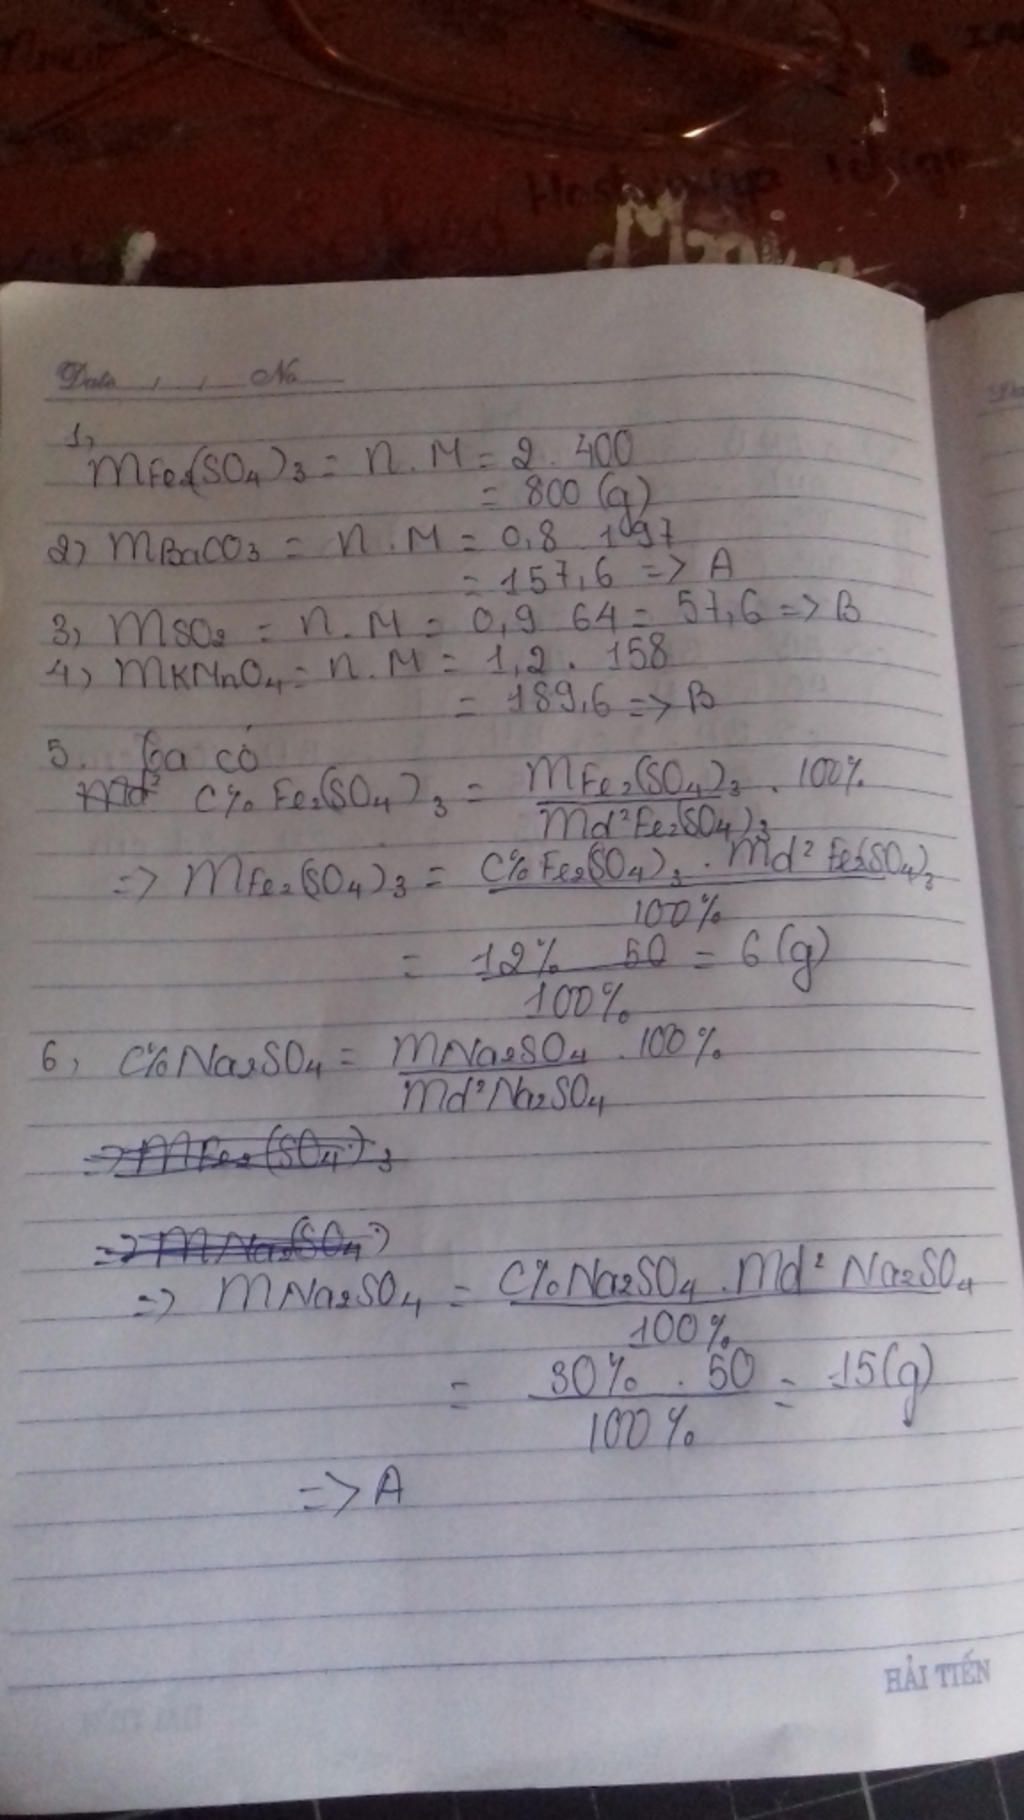 Date , , No
1,
mFe2(SO4)3 = n.M = 2.400
= 800 (g)
2) mBaCO3 = n.M = 0,8 197
= 157,6 => A
3, mSO2 = n.M = 0,9 64 = 57,6 => B
4) mKMnO4 = n.M = 1,2.158
= 189,6 => B
5. Ta có
md² C% Fe2(SO4)3 = mFe2(SO4)3 . 100%
md²Fe2(SO4)3
=> mFe2(SO4)3 = C%Fe2(SO4)3 . md² Fe2(SO4)3
100%
= 12% 50 = 6 (g)
100%
6, C%Na2SO4 = mNa2SO4 . 100%
md²Na2SO4
=> mFe2(SO4)3
=> mNa2(SO4)
=> mNa2SO4 = C%Na2SO4 . md² Na2SO4
100%
= 30% . 50 = 15(g)
100%
=> A
HẢI TIẾN